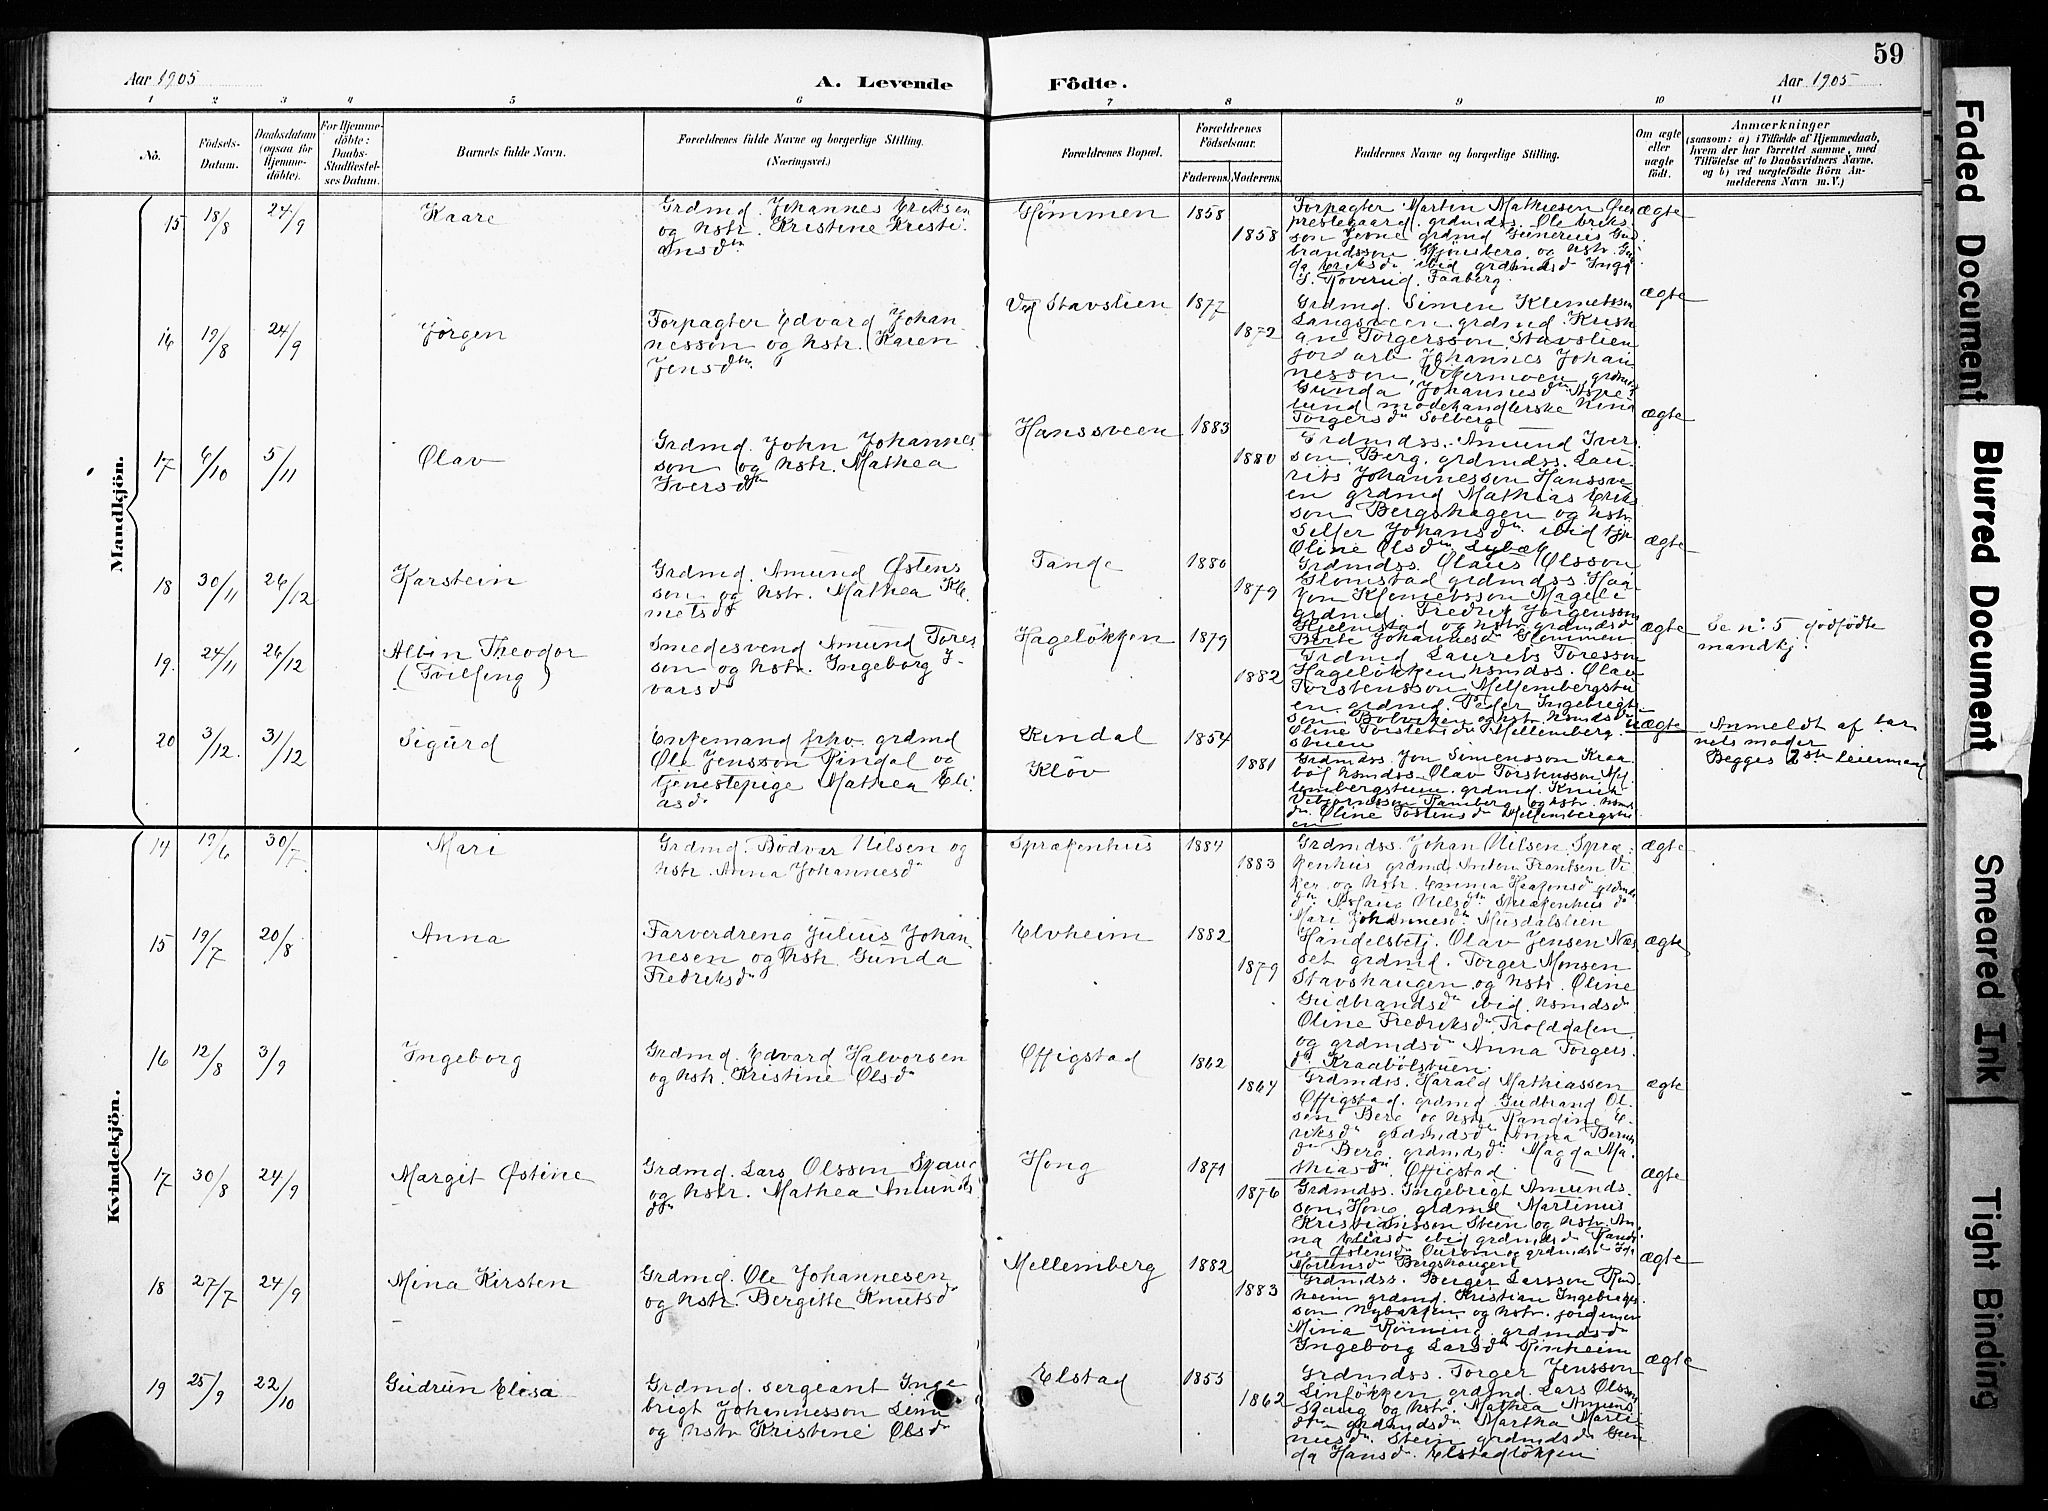 59
Aar 1905
A. Levende
Födte.
Aar 1905
1 2 3 4 5 6 7 8 9 10 11
No.
Födsels-
Datum.
Daabsdatum
(ogsaa for
Hjemme-
döbte).
For Hjemme-
döbte:
Daabs-
Stadfæstel-
ses Datum.
Barnets fulde Navn.
Forældrenes fulde Navne og borgerlige Stilling.
(Næringsvei.)
Forældrenes Bopæl.
Forældrenes
Födselsaar.
Faderens. Moderens.
Faddernes Navne og borgerlige Stilling.
Om ægte
eller
uægte
födt.
Anmærkninger
(saasom: a) i Tilfælde af Hjemmedaab,
hvem der har forrettet samme, med
Tilföielse af to Daabsvidners Navne,
og b) ved uægtefödte Börn An-
melderens Navn m. V.)
Mandkjön.
15 18/8 24/9 Kaare
Grdmd. Johannes Eriksen
og hstr. Kristine Kristi-
ansdtr
Hømmen 1858 1858
Forpagter Martin Mathiesen
prestegaard. grdmdss. Ole Erik-
son Jevne grdmd Gunerius Gud-
brandsson Skjønsberg og hstr.
ibid grdmdsd Inga
Roverud, Faaberg
ægte
16 19/8 24/9 Jørgen
Forpagter Edvard Johan-
nesson og hstr. Karen
Jensdtr
Ved Stavslien 1877 1872
Grdmd. Simen Klemetssen
Langsveen grdmd. Kristi-
ane Torgersson Stavslien
jordarb. Johannes Johan-
nesson, Vikermoen, grdmd
Gunda Johannesdtr
lund modehandlerske
Torgersdtr Solberg
ægte
17 6/10 5/11 Olav
Grdmd. John Johannes-
son og hstr. Mathea
Iversdtr
Hanssveen 1883 1880
Grdmdss. Amund Iver-
son. Berg. grdmdss. Lau-
rits Johannesson Hanssve-
en grdmd Mathias Erik-
son Bergshagen og hstr.
Johansdn ibid
Oline Olsdn
ægte
18 30/11 26/12 Karstein
Grdmd. Amund Østens-
son og hstr. Mathea Kle-
metsdt
Tande 1880 1879
Grdmdss. Olaus Olsson
Glomstad grdmdss. Haa-
kon Klemetsson Mageli
grdmd. Fredrik Jørgensson
Hjelmstad og hstr. grdmdsd
Berte Johannesdn Glommen
ægte
19. 24/11 26/12 Albin Theodor
(Tvilling)
Smedesvend Amund Tores-
son og hstr. Ingeborg I-
varsd
Hageløkken 1879 1882
Grdmd Laurits Toresson
Hageløkken, hsmdss. Olav
Torstensson Mellembergstu-
en grdmd. Peder Ingebrigt-
son og hstr. hsmdsd
Oline Torstensdn Mellemberg-
stuen
ægte
Se no. 5 dødfødte
mandkj.
20 3/12. 31/12 Sigurd
Enkemand frhv. grdmd
Ole Jensson Rindal og
tjenestepige Mathea Eli-
asd
Rindal
Kløv
1854 1881
Grdmdss. Jon Simensson Kraa-
bøl hsmdss. Olav Torstensson Mel-
lembergstuen. grdmd. Knut
Ramberg og hstr. hsmd-
Oline Tostensdn Mellembergstu-
en
uægte
Anmeldt af bar-
nets moder
Begges 2det leiermaal
Kvindekjön.
14 19/6 30/7 Mari
Grdmd. Bödvar Nilsen og
hstr. Anna Johannesdn
Sprækenhus 1884 1883
Grdmdss. Johan Nilsen Spræ-
kenhus grdmd. Anton Frantsen Vi-
ker og hstr. Emma Haakonsdn
Nilsdn Sprækenhus
Mari Johannesdn Musdalslien
ægte
15 19/7 20/8 Anna
Farverdreng Julius Johan-
nesen og hstr. Gunda
Fredriksdn
Elvheim 1882 1879
Handelsbetj. Olav Jensen Næ-
set grdmd. Torger Monsen
Stavshaugen og hstr. Oline
Gudbrandsdn ibid. hsmdsdn
Oline Fredriksdn Trolddalen
og grdmdsdn Anna Torgers-
dn Kraabölstuen.
ægte
16 12/8 3/9 Ingeborg
Grdmd. Edvard Halvorsen
og hstr. Kristine Olsdn
Offigstad 1862 1864
Grdmdss. Harald Mathiassen
Offigstad. grdmd. Gudbrand Ol-
sen Berg og hstr. Randine E-
riksdn grdmdsdn Anna
Berg. grdmdsdn Magda Ma-
thiasdn Offigstad
ægte
17 30/8 24/9 Margit Østine
Grdmd. Lars Olsson Skaug
og hstr. Mathea Amunds
dtr
Hong 1871 1876
Grdmdss. Ingebrigt Amunds-
son, Hong grdmd Martinus
Kristiansson Stein og hstr. An-
na Eliasdn ibid grdmdsdn
Østensdn og grdmdsdn
Mortensdn Bergshaugen
ægte
18 27/7 24/9 Mina Kirsten
Grdmd. Ole Johannesen
og hstr. Bergitte Knutsdn
Mellemberg 1882 1883
Grdmdss. Berger Larsson Rin-
heim grdmd. Kristian Ingebrigt-
son Nybakken og hstr. jordemor
Mina Rönning grdmdsdn
Ingeborg Larsdn Rinheim
ægte
19 25/9 22/10 Gudrun Elisa
Grdmd. sergeant Inge-
brigt Johannesson
og hstr Kristine Olsdn
Elstad 1853 1862
Grdmdss. Torger Jensson
Linløkken grdmd. Lars Olsson
Skaug og hstr. Mathea Amunds-
dtr grdmdsdn Martha Marti-
nusdn Stein grdmdsdn Gun-
da Hansdn Elstadløkken
ægte
Faded Document
Blurred Document
Smeared Ink
Tight Binding